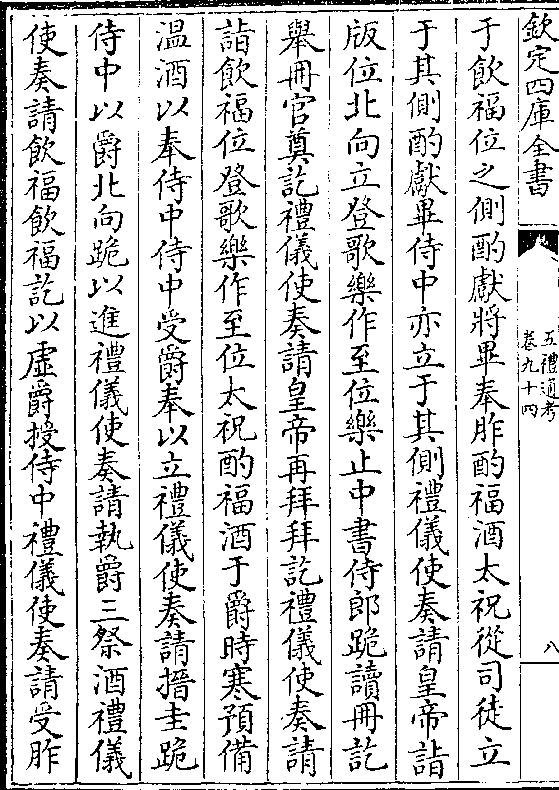 欽定四庫全書
五禮通考
卷九十四
八
于飲福位之側酌獻將畢奉胙酌福酒太祝從司徒立
于其側酌獻畢侍中亦立于其側禮儀使奏請皇帝詣
版位北向立登歌樂作至位樂止中書侍郎跪讀冊訖
舉冊官奠訖禮儀使奏請皇帝再拜拜訖禮儀使奏請
詣飲福位登歌樂作至位太祝酌福酒于爵時寒預備
温酒以奉侍中侍中受爵奉以立禮儀使奏請搢圭跪
侍中以爵北向跪以進禮儀使奏請執爵三祭酒禮儀
使奏請飲福飲福訖以虛爵授侍中禮儀使奏請受胙